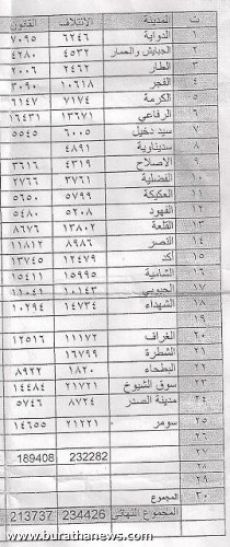 ت المدينة الائتلاف القانون
١ الدواية ٦٢٤٦ ٧٠٩٥
٢ الجبايش والحمار ٤٥٣٢ ٤٢٨٠
٣ الطار ٢٤٦٢ ٢٠٠٦
٤ الفجر ١٠٦١٨ ٣٠٩٠
٥ الكرمة ٧١٧٤ ٦١٤٧
٦ الرفاعي ١٣٦٧١ ١٦٤٣١
٧ سيد دخيل ٦٠٠٥ ٥٥٤٥
٨ سديناوية ٤٨٩١
٩ الاصلاح ٤٣١٩ ٣٦١٦
١٠ الفضلية ٣٧٦١ ٢٧٦٦
١١ العكيكة ٥٧٩٩ ٥٦٥٠
١٢ الفهود ٥٢٠٨ ٥٤٨٠
١٣ القلعة ١٣٨٠٢ ٨٦٧٦
١٤ النصر ٨٩٨٦ ١١٨١٢
١٥ أكد ١٢٤٧٩ ١٣٧٤٥
١٦ الشامية ١٥٩٩٥ ١٥٤١١
١٧ الحبوبي ١٠١٤٣ ١١٠٤١
١٨ الشهداء ١٤٧٣٤ ١٠٢٩٤
١٩
٢٠ الغراف ١١١٧٢ ١٢٥١٦
٢١ الشطرة ١٦٧٩٩
٢٢ البطحاء ١٨٢٠ ٨٩٢٢
٢٣ سوق الشيوخ ٢١٧٢١ ١٤٤٨٤
٢٤ مدينة الصدر ٨٧٢٤ ٥٧٤٦
٢٥ سومر ٢١٢٢١ ١٤٦٥٥
٢٦
٢٧ 232282 189408
٢٨
٢٩
٣٠ المجموع
المجموع النهائي 234426 213737
www.burathanews.com